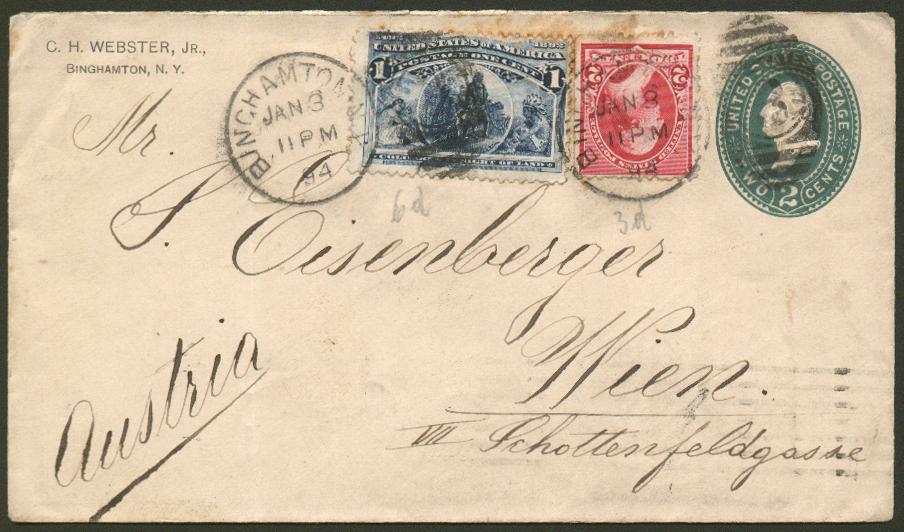 C. H. WEBSTER, JR.,
BINGHAMTON, N. Y.
BINGHAMTON
JAN 8
11 PM
94
1492 1892
UNITED STATES OF AMERICA
POSTAGE ONE CENT
1 1
2 2
BINGH
JAN 8
11 PM
94
UNITED STATES POSTAGE
TWO 2 CENTS
6d
3d
Mr.
S. Eisenberger
Wien.
VII Schottenfeldgasse
Austria